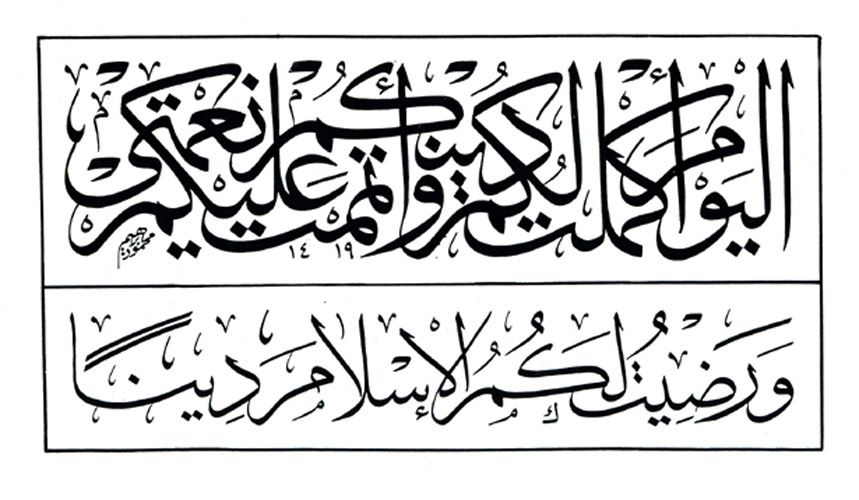 اليوم أكملت لكم دينكم وأتممت عليكم نعمتي
١٤١٩
وَرَضِيتُ لَكُمُ الإِسْلامَ دِينًا